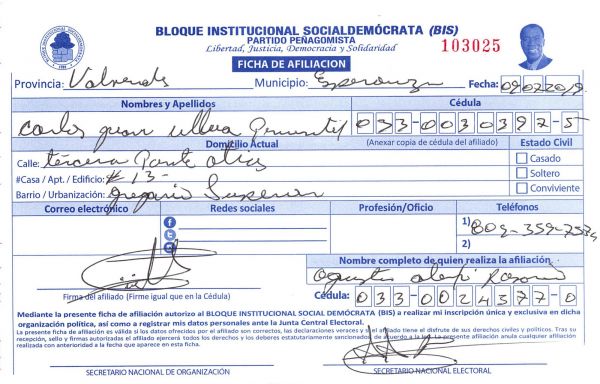 BLOQUE INSTITUCIONAL SOCIALDEMÓCRATA (BIS)
PARTIDO PEÑAGOMISTA
Libertad, Justicia, Democracia y Solidaridad
103025
FICHA DE AFILIACION
Provincia: Valverde Municipio: Esperanza Fecha: 09072019
Nombres y Apellidos Cédula
Carlos Juan Ulloa Pimentel 033-0030397-5
Domicilio Actual (Anexar copia de cédula del afiliado) Estado Civil
Calle: tercera Parte atras Casado
#Casa / Apt. / Edificio: # 13- Soltero
Barrio / Urbanización: Gregorio Luperon Conviviente
Correo electrónico Redes sociales Profesión/Oficio Teléfonos
1) 809-359-7534
2)
Nombre completo de quien realiza la afiliación
Firma del afiliado (Firme igual que en la Cédula)
Cédula: 033-0024377-0
Mediante la presente ficha de afiliación autorizo al BLOQUE INSTITUCIONAL SOCIAL DEMÓCRATA (BIS) a realizar mi inscripción única y exclusiva en dicha
organización política, así como a registrar mis datos personales ante la Junta Central Electoral.
La presente ficha de afiliación es válida si los datos ofrecidos por el afiliado son correctos, las declaraciones veraces y si el afiliado tiene el disfrute de sus derechos civiles y políticos. Tras su
recepción, sello y firmas autorizadas el afiliado ejercerá todos los derechos y los deberes estatutariamente sancionados de acuerdo a la Ley. La presente afiliación anula cualquier afiliación
realizada con anterioridad a la fecha que aparece en esta ficha.
SECRETARIO NACIONAL DE ORGANIZACIÓN SECRETARIO NACIONAL ELECTORAL